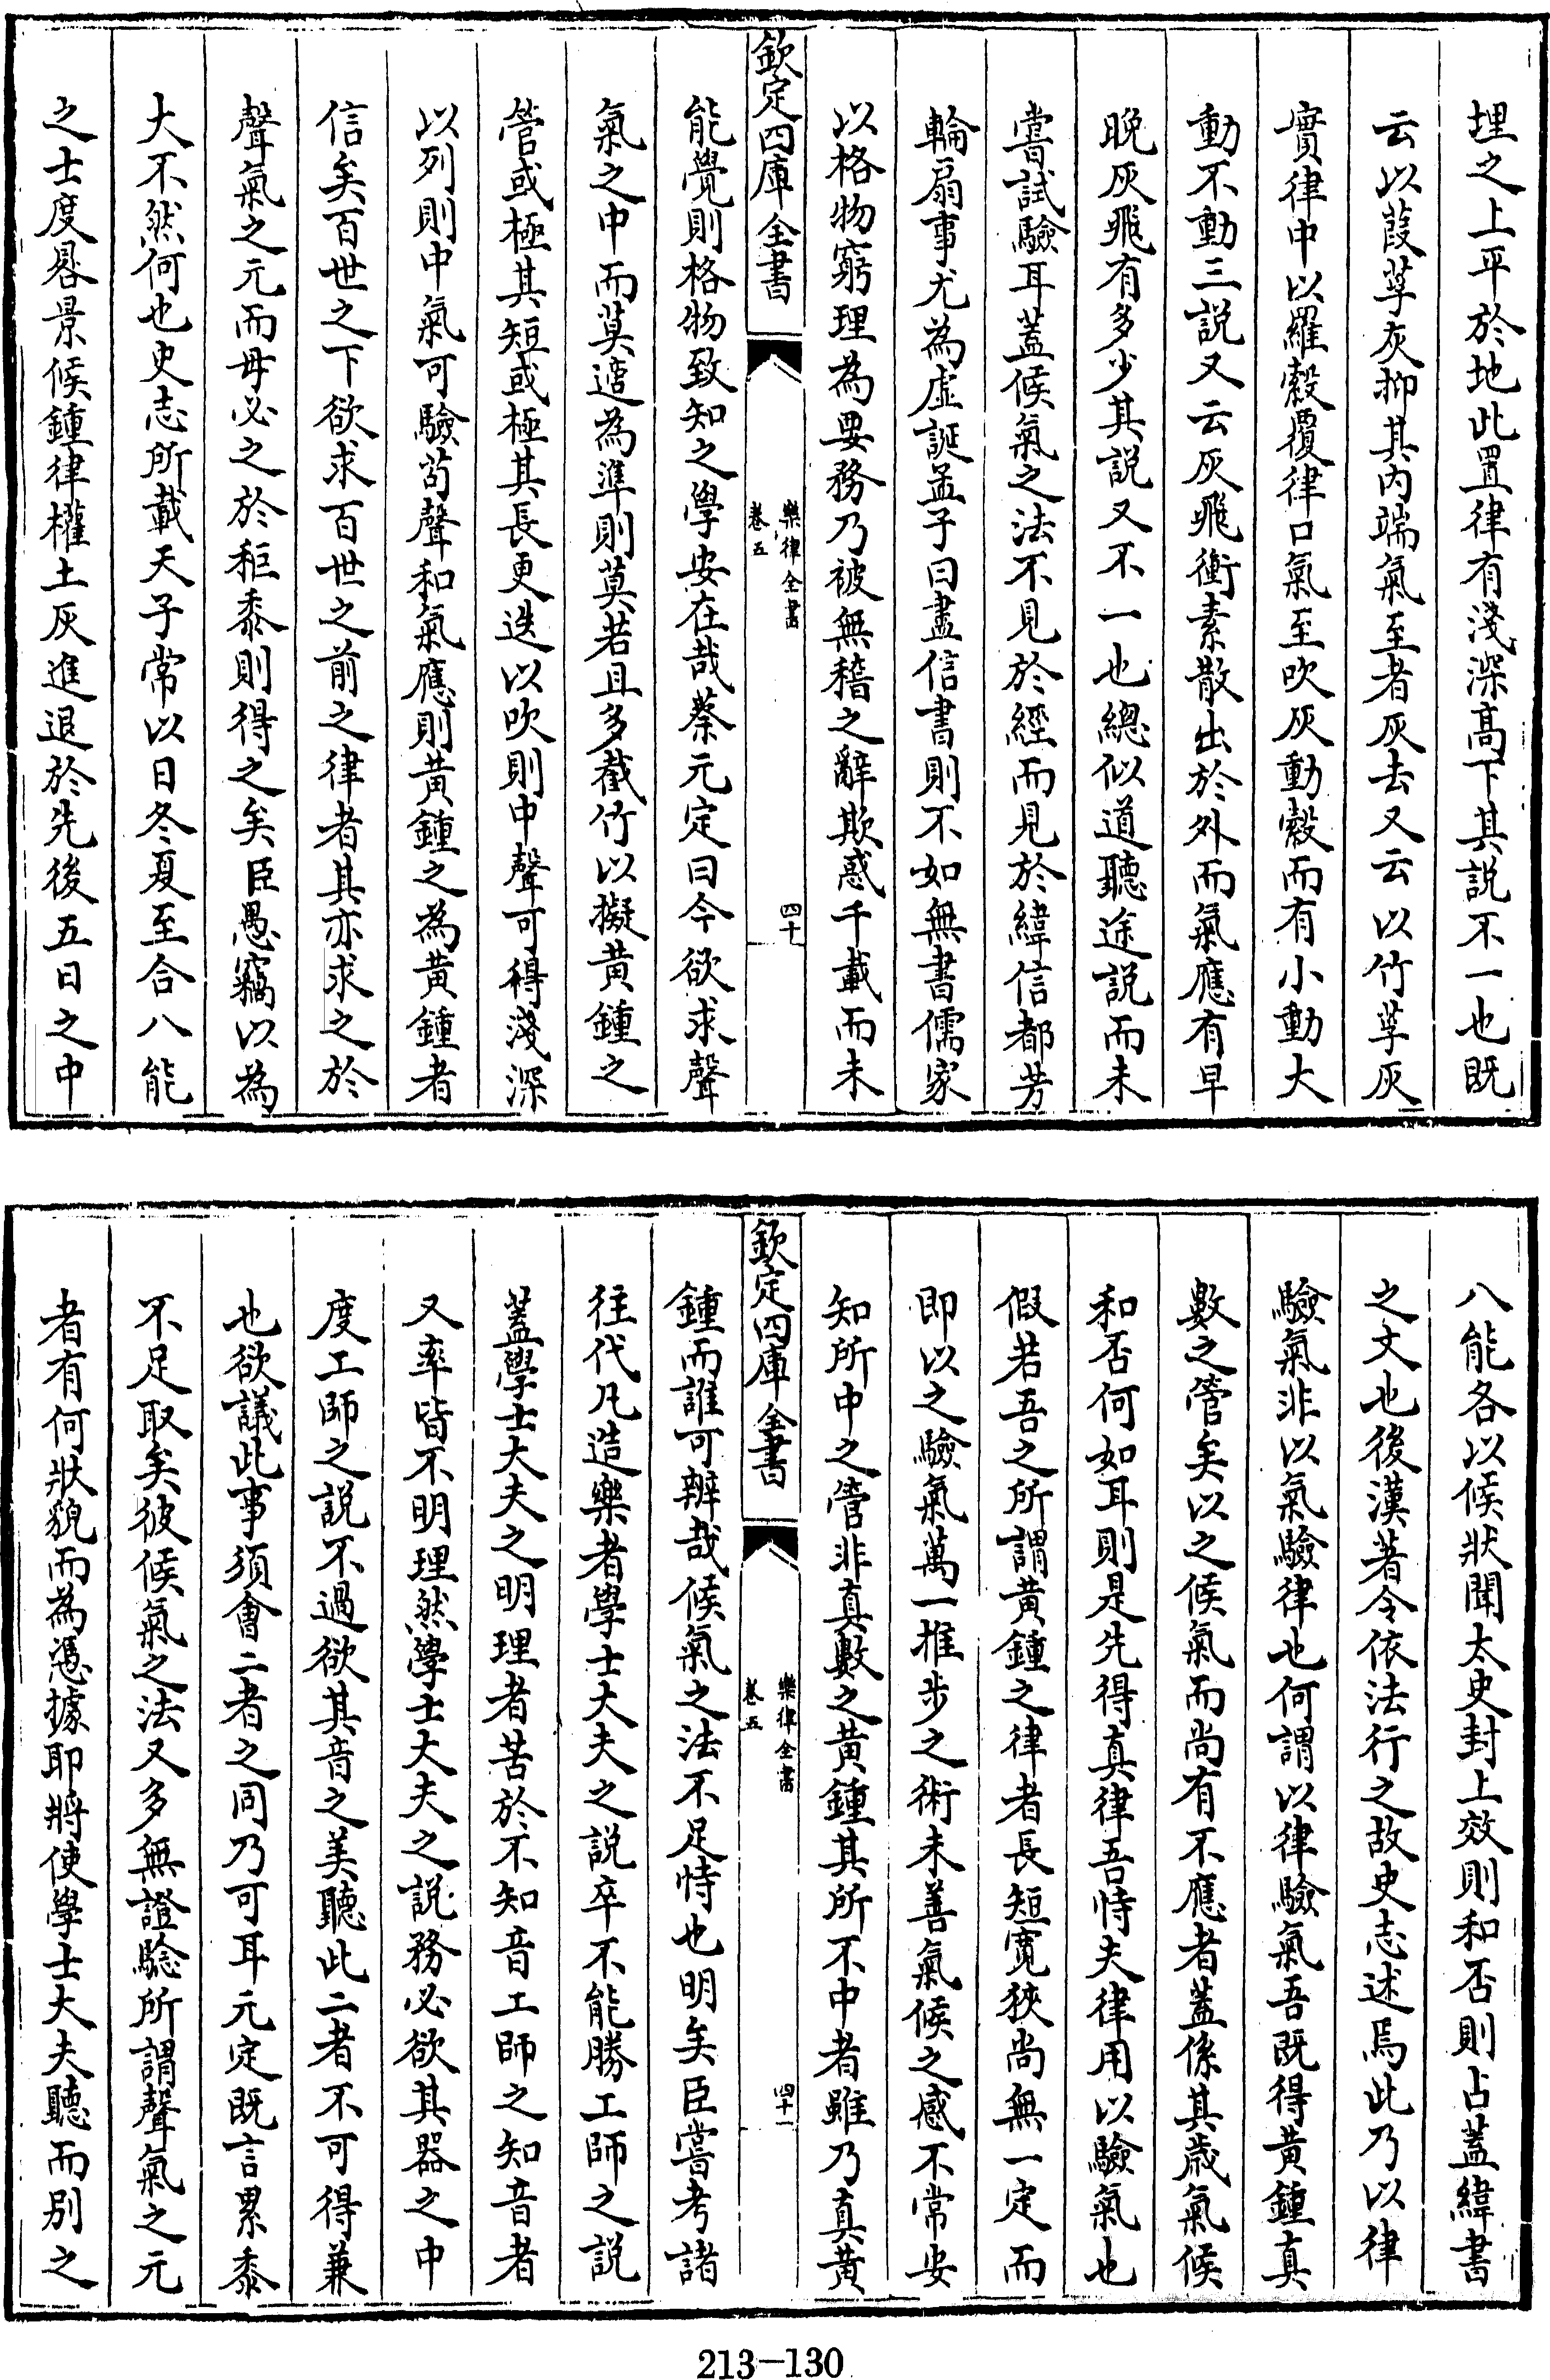 埋之上平於地此置律有淺深高下其説不一也既
云以葭莩灰抑其内端氣至者灰去又云以竹莩灰
實律中以羅縠覆律口氣至吹灰動縠而有小動大
動不動三説又云灰飛衝素散出於外而氣應有早
晚灰飛有多少其説又不一也總似道聽途説而未
嘗試驗耳蓋候氣之法不見於經而見於緯信都芳
輪扇事尤為虛誕孟子曰盡信書則不如無書儒家
以格物窮理為要務乃被無稽之辭欺惑千載而未
欽定四庫全書
樂律全書
卷五
四十
能覺則格物致知之學安在哉蔡元定曰今欲求聲
氣之中而莫適為準則莫若且多截竹以擬黃鍾之
管或極其短或極其長更迭以吹則中聲可得淺深
以列則中氣可驗茍聲和氣應則黃鍾之為黃鍾者
信矣百世之下欲求百世之前之律者其亦求之於
聲氣之元而毋必之於秬黍則得之矣臣愚竊以為
大不然何也史志所載天子常以日冬夏至合八能
之士度晷景候鍾律權土灰進退於先後五日之中
八能各以候狀聞太史封上效則和否則占蓋緯書
之文也後漢著令依法行之故史志述焉此乃以律
驗氣非以氣驗律也何謂以律驗氣吾既得黃鍾真
數之管矣以之候氣而尚有不應者蓋係其歲氣候
和否何如耳則是先得真律吾恃夫律用以驗氣也
假若吾之所謂黃鍾之律者長短寬狹尚無一定而
即以之驗氣萬一推步之術未善氣候之感不常安
知所中之管非真數之黃鍾其所不中者雖乃真黃
欽定四庫全書
樂律全書
卷五
四十一
鍾而誰可辨哉候氣之法不足恃也明矣臣嘗考諸
往代凡造樂者學士大夫之説卒不能勝工師之説
蓋學士大夫之明理者苦於不知音工師之知音者
又率皆不明理然學士大夫之説務必欲其器之中
度工師之説不過欲其音之美聽此二者不可得兼
也欲議此事須會二者之同乃可耳元定既言累黍
不足取矣彼候氣之法又多無證驗所謂聲氣之元
者有何狀貌而為憑據耶將使學士大夫聽而別之
213-130